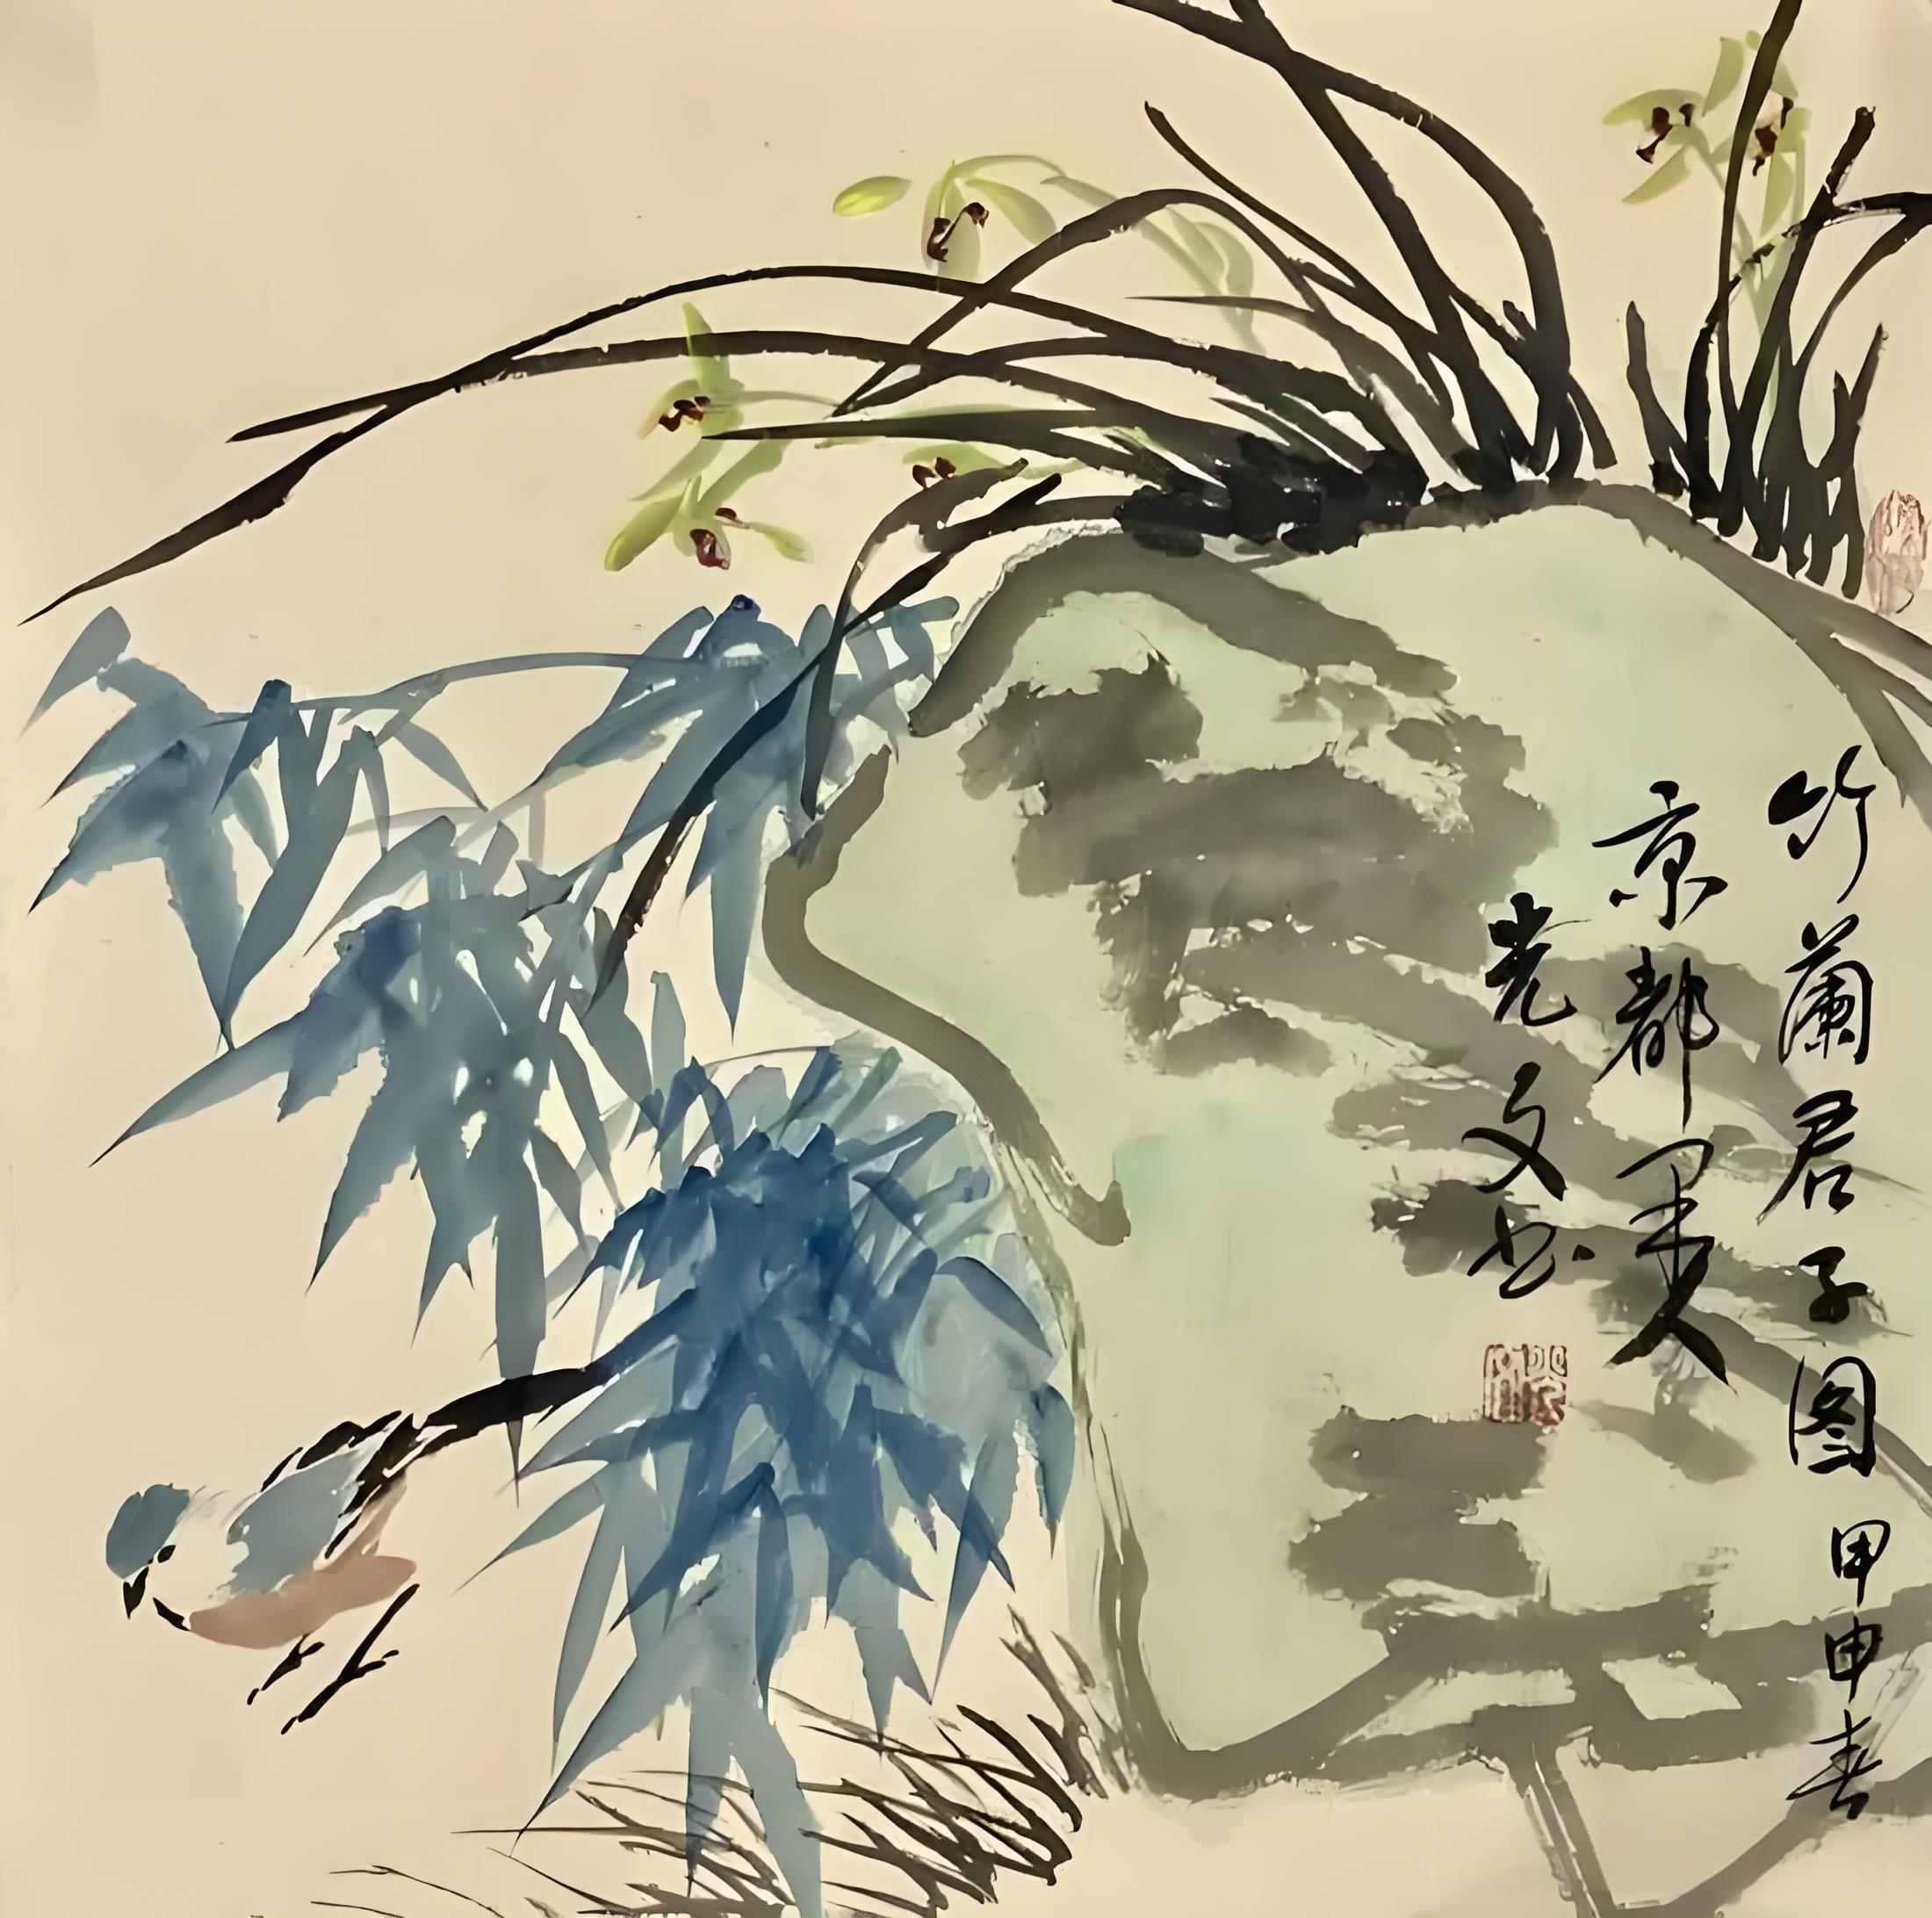 竹蘭君子图 甲申春
京都里人
光文书